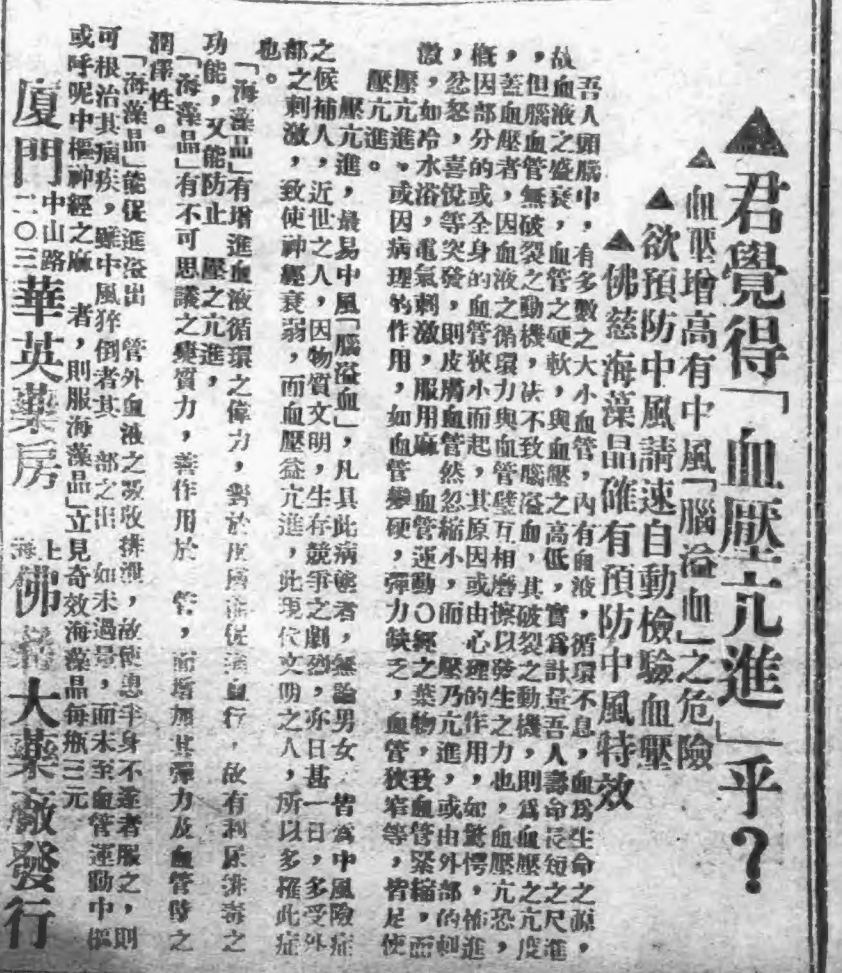 ▲君覺得「血壓亢進」乎？
▲血壓增高有中風「腦溢血」之危險
▲欲預防中風請速自動檢驗血壓
▲佛慈海藻品確有預防中風特效
吾人頭腦中，有多數之大小血管，內有血液，循環不息，血爲生命之源，
故血液之盛衰，血管之硬軟，與血壓之高低，實爲計量吾人壽命長短之尺進
，但腦血管無破裂之動機，决不致腦溢血，其破裂之動機，則爲血壓之亢度
，蓋血壓者，因血液之循環力與血管壁互相磨擦以發生之力也，血壓亢恐，
概因部分的或全身的血管狹小而起，其原因或由心理的作用，如驚愕，怖進
，忿怒，喜悅等突發，則皮膚血管然忽縮小，而 壓乃亢進，或由外部的刺
激，如冷水浴，電氣刺激，服用麻 血管運動〇經之葉物，致血管緊縮，而
壓亢進。或因病理的作用，如血管變硬，彈力缺乏，血管狹窄等，皆足使
壓亢進。
壓亢進，最易中風「腦溢血」，凡具此病態者，無論男女 皆爲中風險症
之候補人，近世之人，因物質文明，生存競爭之劇烈，亦日甚一日，多受外
部之刺激，致使神經衰弱，而血壓益亢進，此現代文明之人，所以多罹此症
也。
「海藻品」有增進血液循環之偉力，對於 能促進血行，故有利尿排毒之
功能，又能防止 壓之亢進，
「海藻品」有不可思議之變質力，善作用於 管，而增加其彈力及血管時之
潤澤性。
「海藻品」能促進溢出 管外血液之吸收排泄，故使患半身不遂者服之，則
可根治其痼疾，雖中風猝倒者其 部之出 如未過量，而未至血管運動中樞
或呼呢中樞神經之麻 者，則服海藻品」立見奇效海藻品每瓶三元
廈門中山路二〇三華英藥房 上海佛慈大藥廠發行